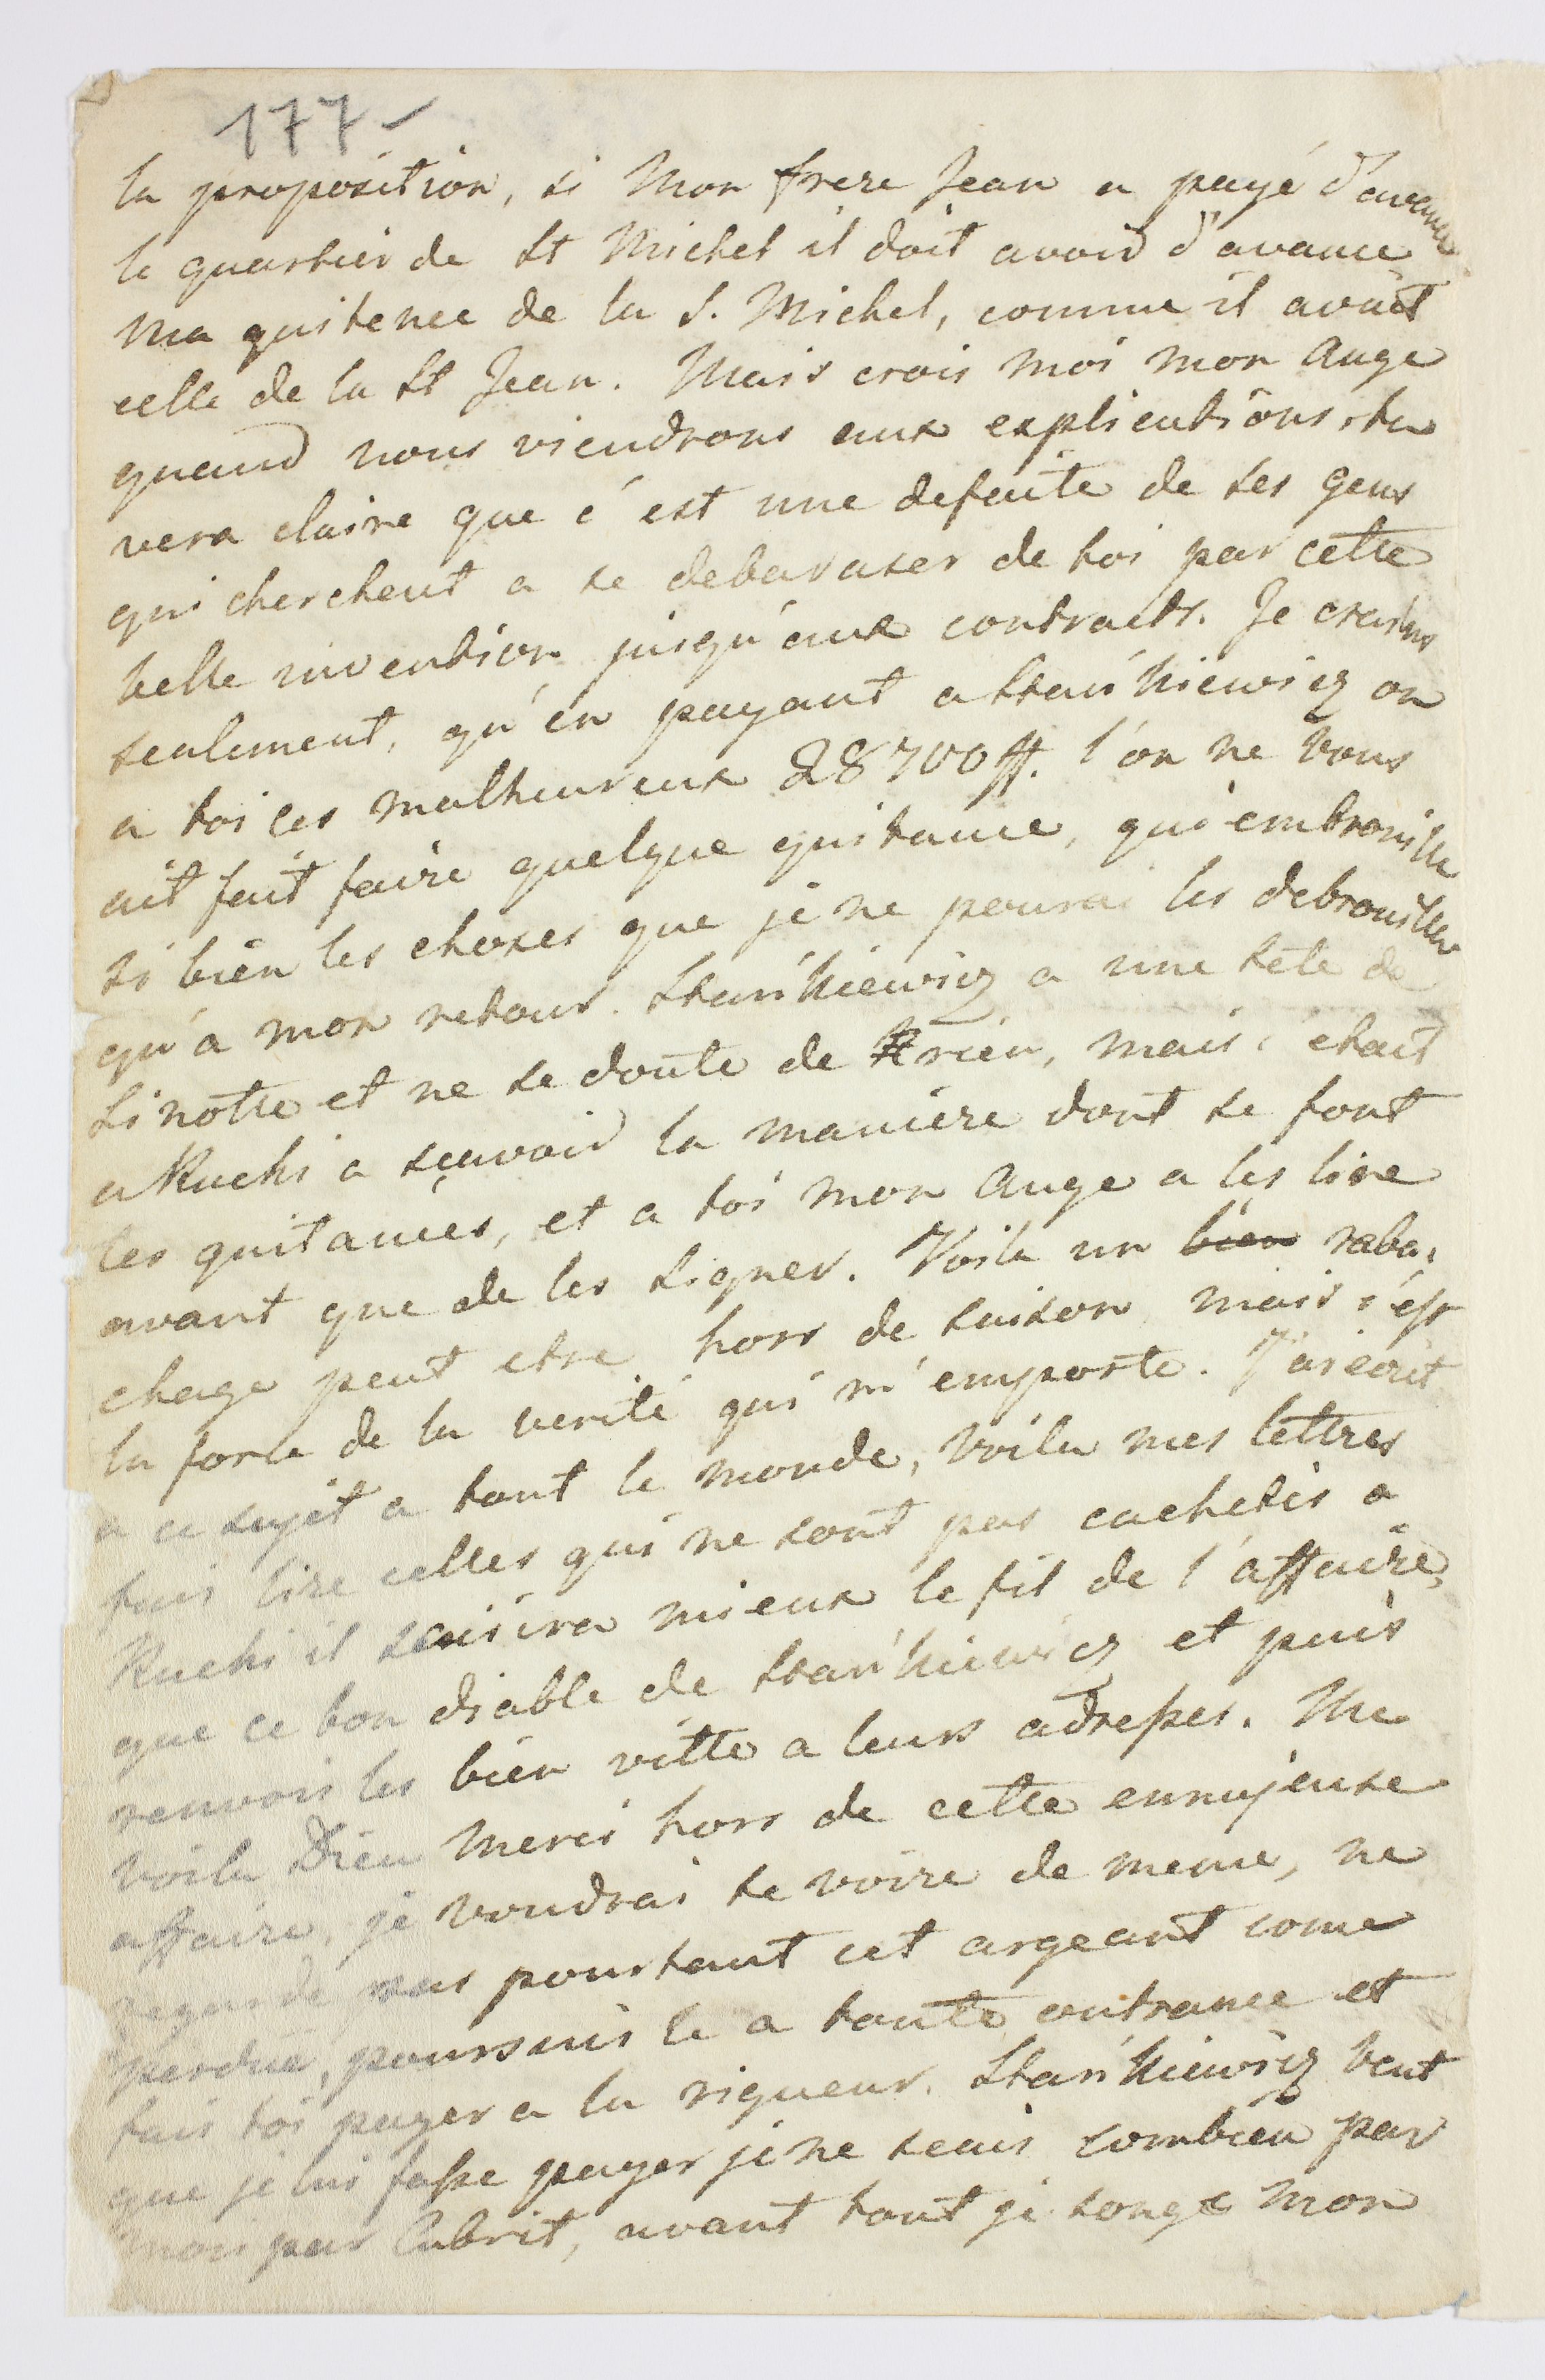 177-
la proposition, si Mon frere Jean a payé d'avance
le quartier de St Michel il doit avoir d'avance
Ma quitence de la S. Michel, comme il avait
celle de la St Jean. Mais crois moi mon Ange
quand nous viendrons aux explications, tu
vera claire que c'est une defaite de ses gens
qui cherchent a se debaraser de toi par cette
belle invention jusqu'aux contracts. Je crains
seulement, qu'en payant a Stańkiewicz on
a toi ces malheureux 28700 ff. l'on ne vous
ait fait faire quelque quitance, qui embrouille
si bien les choses que je ne pourai les debrouiller
qu'a mon retour. Stańkiewicz a une tete de
Linotte et ne se doute de rien, mais c'etait
a Rucki a sçavoir la maniere dont se font
les quitances, et a toi mon Ange a les lire
avant que de les signer. Voila un bien raba-
chage peut etre hors de saison mais c'est
la force de la verité qui m'emporte. J'ai ecrit
a ce sujet a tout le monde, voila mes lettres
fais lire celles qui ne sont pas cachetés a
Rucki il saisira mieux le fil de l'affaire,
que ce bon diable de Stańkiewicz et puis
renvois les bien vitte a leurs adresses. Me
voila Dieu merci hors de cette ennujeuse
affaire, je voudrai te voire de meme, ne
regarde pas pourtant cet argeant come
perdue, poursuis le a toute outrance et
fais toi payer a la rigueur. Stańkiewicz veut
que je lui fasse payer je ne sais combien par
mon par Cubrit, avant tout je songe mon